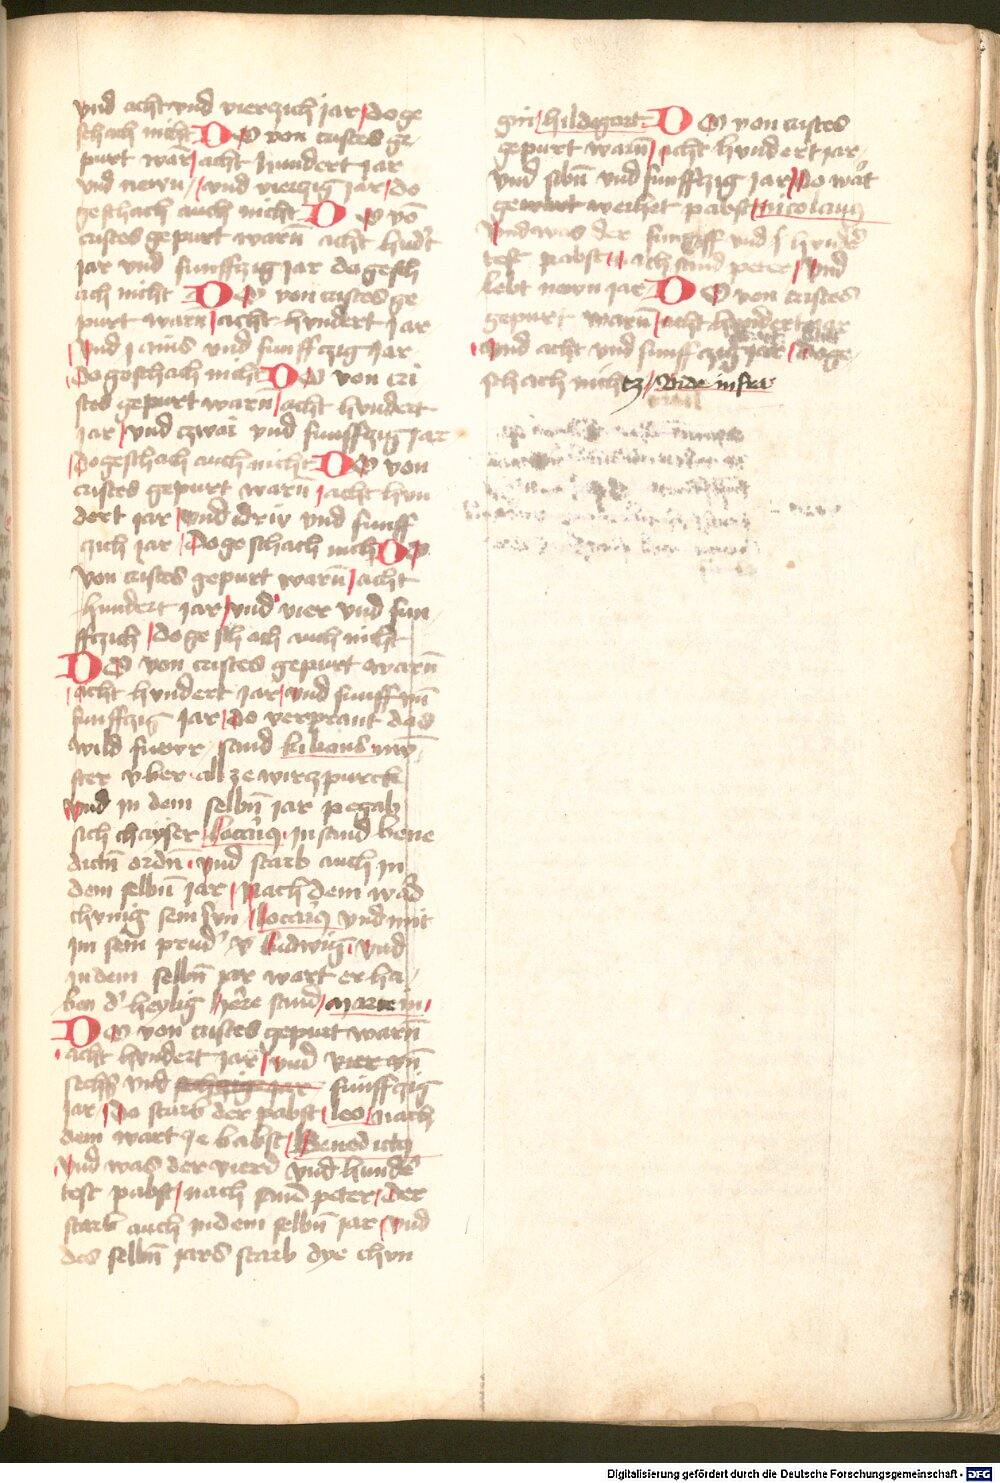 vnd acht vnd vierczich jar / Do ge
schach nicht DO von cristes ge
purt warn / acht hundert jar
vnd newn / vnd vierczig jar / do
geschach auch nicht DO vō
cristes gepurt warn acht hūdt
jar vnd funffczig jar do gesch
ach nicht DO von cristes ge
purt warn / acht hvndert jar
vnd vnd funffczig jar
Do geschach nicht DO von cri
stes gepurt warn / acht hvndert
jar / vnd czwai vnd funffczig jar
Do geschach auch nicht DO von
cristes gepurt warn / acht hvn
dert jar / vnd driv vnd funff
czich jar / Do geschach nich DO
von cristes gepurt warn / acht
hundert jar / vnd vier vnd fun
ffczich / do geschach auch nicht
DO von cristes gepurt warn
acht hvndert jar / vnd funff vn̄
funffczig jar / do verprant das
wild fuwr sand kilians mv̄
ster vber al ze wirczpurck
vnd in dem selbn̄ jar pegab
sich chayser in sand bene
dictn̄ ordn̄ vnd starb auch in
dem selbn̄ jar / Nach dem wa͛d
chvnig sein svn / vnd mit
im sein prud͛ Ludwiig vnd
in dem selbn̄ jar wart er ha
ben d͛ heylig here sand / martein
DO von cristes gepurt warn̄
acht hvndert jar / vnd
sechs vnd funffczig
jar / Do starb der pabst / leo / nach
dem wart ze babst / Benedictꝯ
vnd was der vierd vnd hunde͛
test pabst / nach sand peter / der
starb auch in dem selbn̄ jar / vnd
des selbn̄ jars starb dye chvn
gin / hildegart DO von cristes
gepurt warn̄ / acht hvndert jar
vnd sibn̄ vnd funffczig jar / Do wa͛t
geweihet pabst / nicolaus
vnd was der vnd hvnde͛
test pabst / nach sand peter / vnd
lebt newn jar / DO von cristes
gepurt warn̄ / acht hvndert jar
vnd acht vnd funffczig jar / do ge
schach nichtz / vide infra
Digitalisierung gefördert durch die Deutsche Forschungsgemeinschaft - DFG